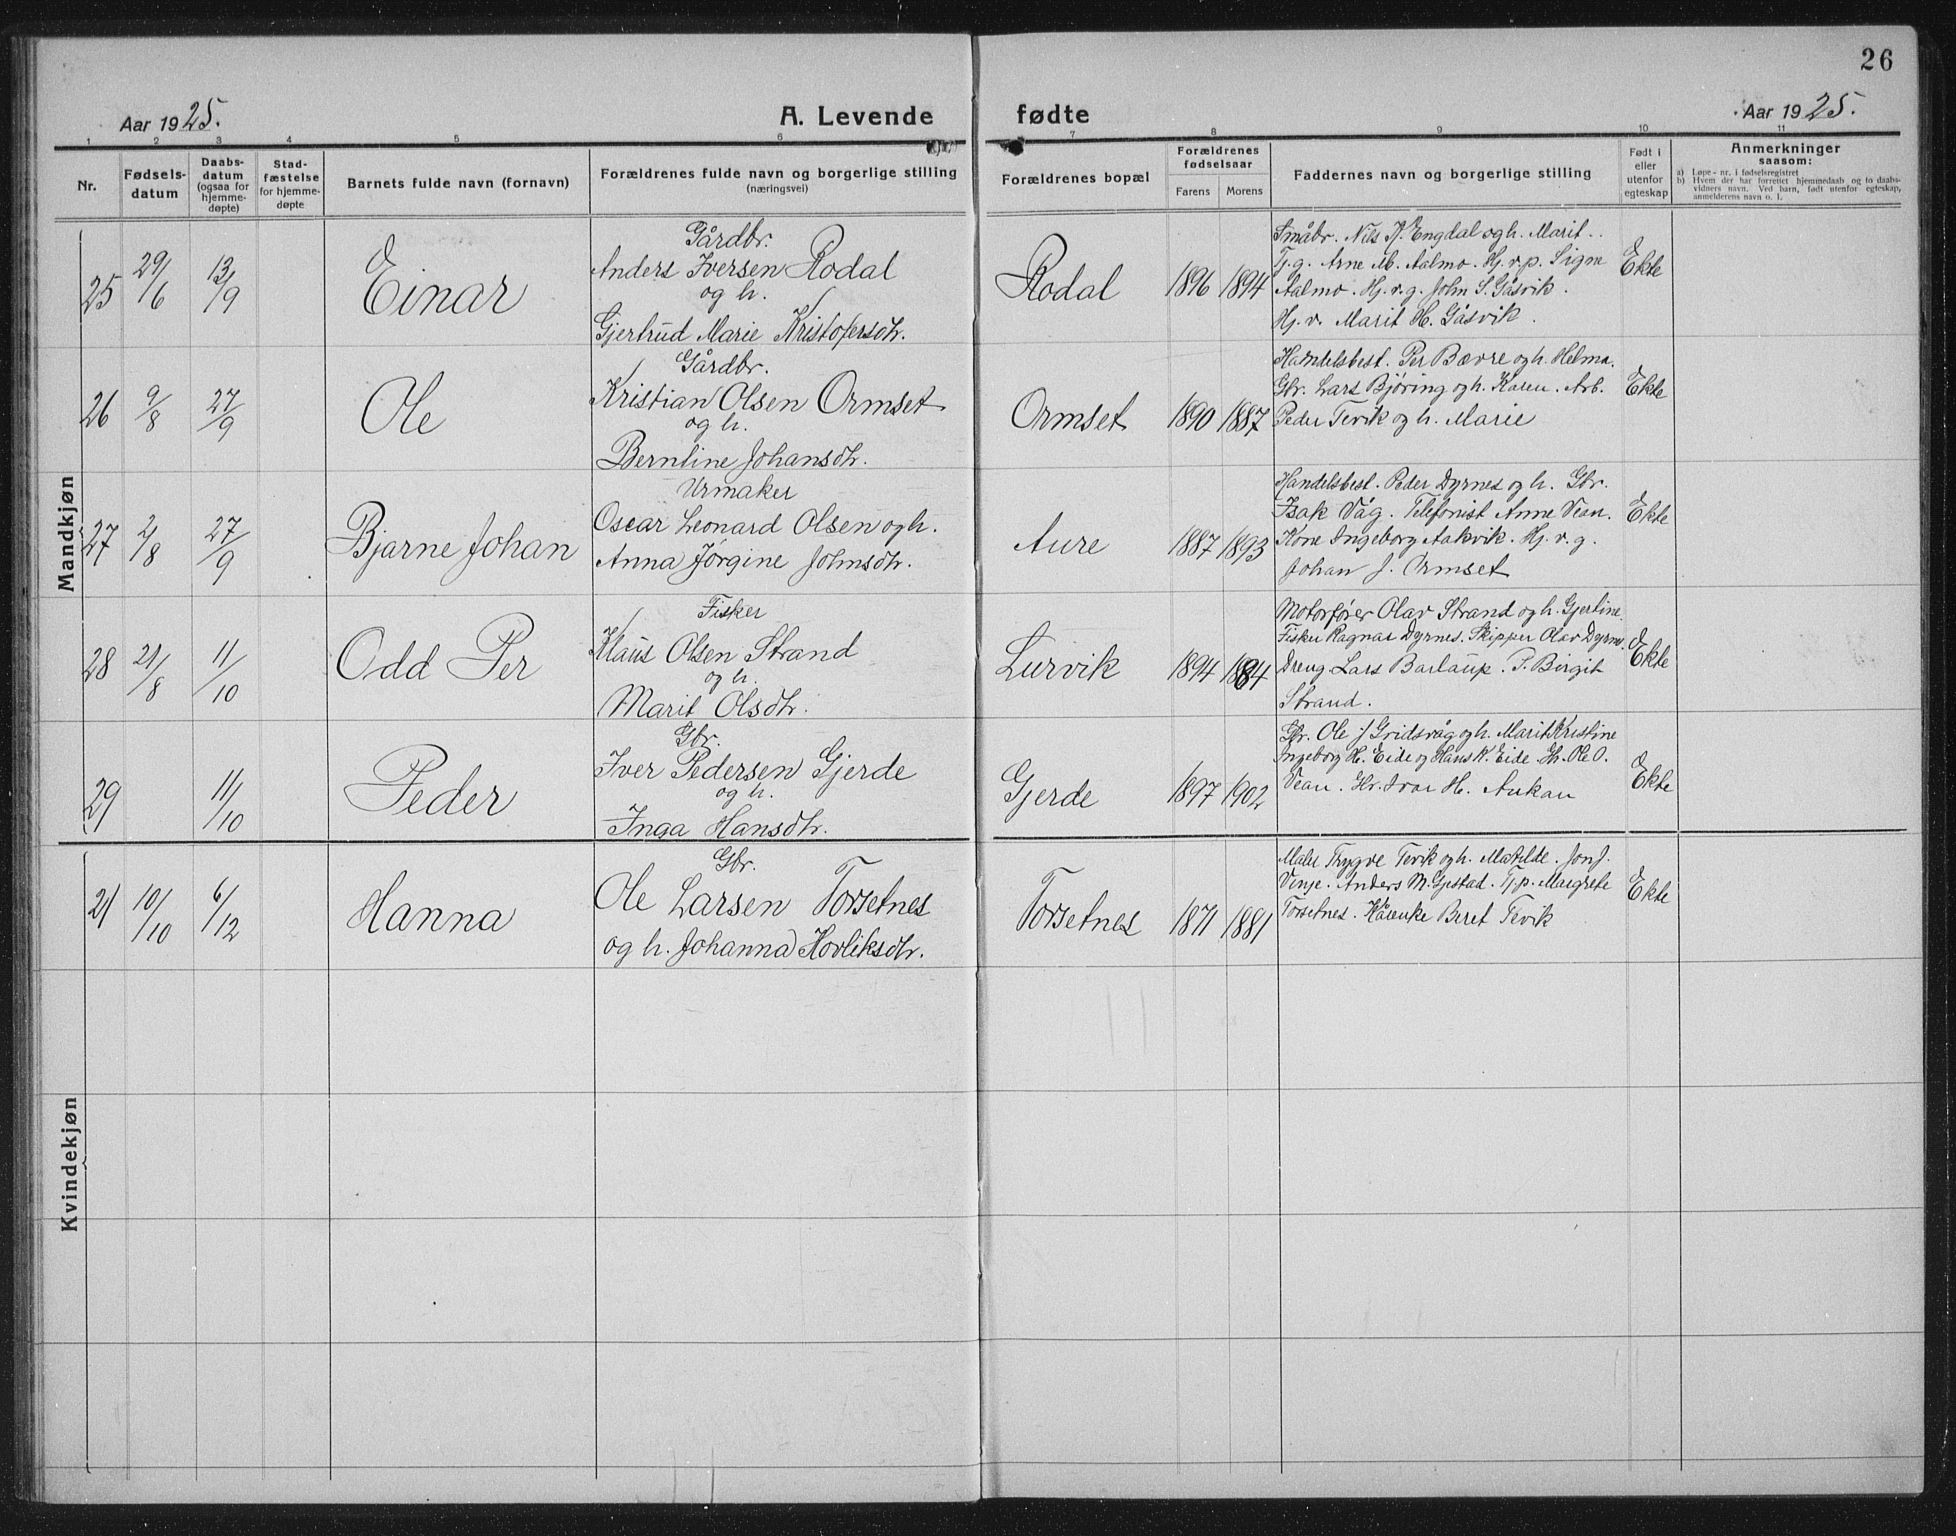 26
Aar 1925.
A. Levende fødte
Aar 1925.
1 2 3 4 5 6 7 8 9 10 11
Nr.
Fødsels-
datum
Daabs-
datum
(ogsaa for
hjemme-
døpte)
Stad-
fæstelse
for hjemme-
døpte
Barnets fulde navn (fornavn)
Forældrenes fulde navn og borgerlige stilling
(næringsvei)
Forældrenes bopæl
Forældrenes
fødselsaar
Farens Morens
Faddernes navn og borgerlige stilling
Født i
eller
utenfor
egteskap
Anmerkninger
saasom:
a) Løpe-nr. i fødselsregistret
b) Hvem der har forrettet hjemmedaab og to daabs-
vidners navn. Ved barn, født utenfor egteskap,
anmelderens navn o. l.
Mandkjøn
25 29/6 13/9 Einar
Gårdbr.
Anders Iversen Rodal
og h.
Gjertrud Marie Kristofersdtr.
Rodal 1896 1894
Småbr. Nils K. Engdal og h. Marit.
Tj. g. Arne M. Aalmo. Hj. v. p. Signe
Aalmo. Hj. v. g. John S. Gåsvik.
Hj. v. Marit H. Gåsvik.
Ekte
26 9/8 27/9 Ole
Gårdbr.
Kristian Olsen Ormset
og h.
Berntine Johansdtr.
Ormset 1890 1887
Handelsbest. Per Bævre og h. Helma.
Gbr. Lars Bjøring og h. Karen. Arb.
Peder Tevik og h. Marie
Ekte
27 2/8 27/9 Bjarne Johan
Urmaker
Oscar Leonard Olsen og h.
Anna Jørgine Johnsdtr.
Aure 1887 1893
Handelsbest. Peder Dyrnes og h. Gbr.
Isak Våg. Telefonist Anne Vean.
Kone Ingeborg Aakvik. Hj. v. g.
Johan J. Ormset
Ekte
28 21/8 11/10 Odd Per
Fisker
Klaus Olsen Strand
og h.
Marit Olsdtr.
Lurvik 1894 1884
Motorfører Olav Strand og h. Gjertine.
Fisker Ragnar Dyrnes. Skipper Olav Dyrnes.
Dreng Lars Barlaup. P. Birgit
Strand.
Ekte
29 11/10 Peder
Gbr.
Iver Pedersen Gjerde
og h.
Inga Hansdtr.
Gjerde 1897 1902
Gbr. Ole J Gridsvåg og h. Marit Kristine
Ingeborg H. Eide og Hans K. Eide. Ole O.
Vean. Ivar H. Aukan
Ekte
Kvindekjøn
21 10/10 6/12 Hanna
Gbr.
Ole Larsen Torsetnes
og h. Johanna Hovliksdtr.
Torsetnes 1871 1881
Maler Trygve Tevik og h. Matilde. Jon J.
Vinje. Anders M. Gjestad. Tj. p. Margrete
Torsetnes. Beret Tevik
Ekte